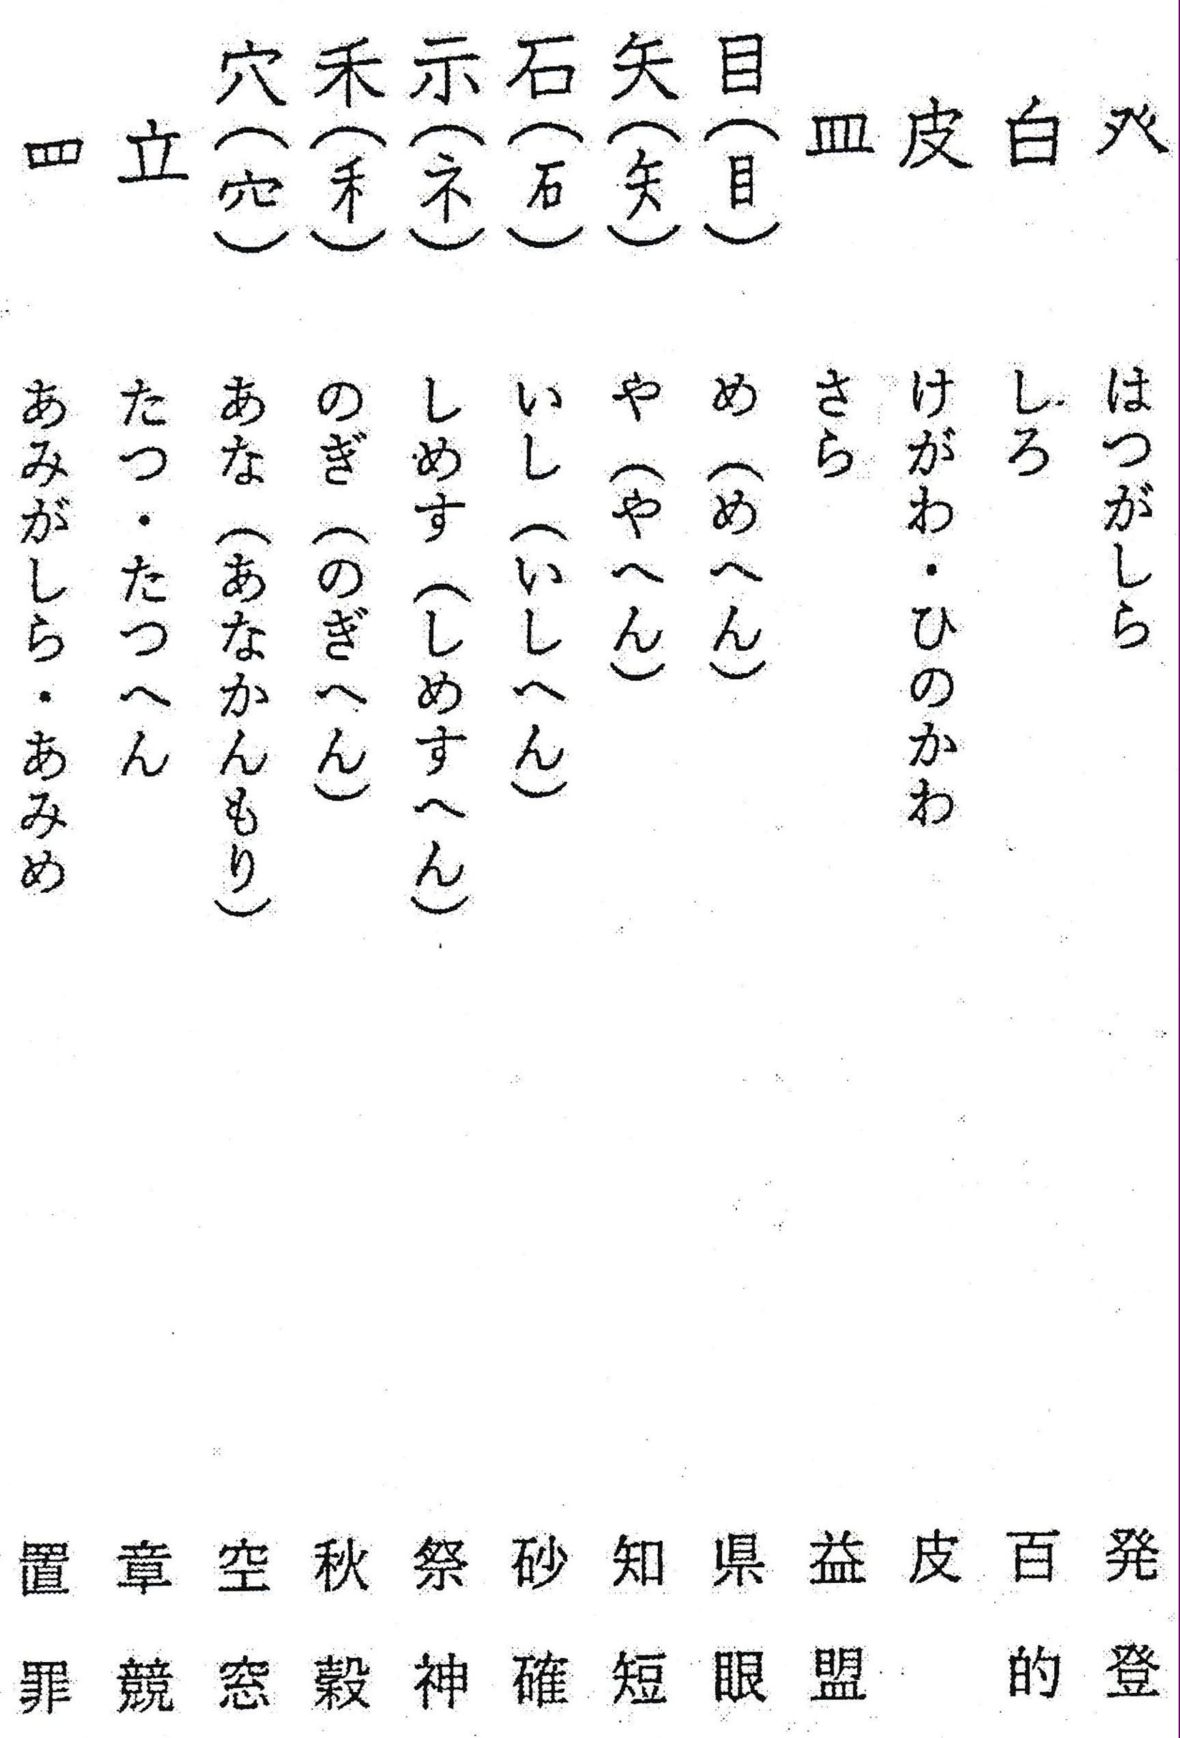 癶 はつがしら 発 登
白 しろ 百 的
皮 けがわ・ひのかわ 皮
皿 さら 益 盟
目(目) め(めへん) 県 眼
矢(矢) や(やへん) 知 短
石(石) いし(いしへん) 砂 確
示(ネ) しめす(しめすへん) 祭 神
禾(禾) のぎ(のぎへん) 秋 穀
穴(穴) あな(あなかんもり) 空 窓
立 たつ・たつへん 章 競
罒 あみがしら・あみめ 置 罪